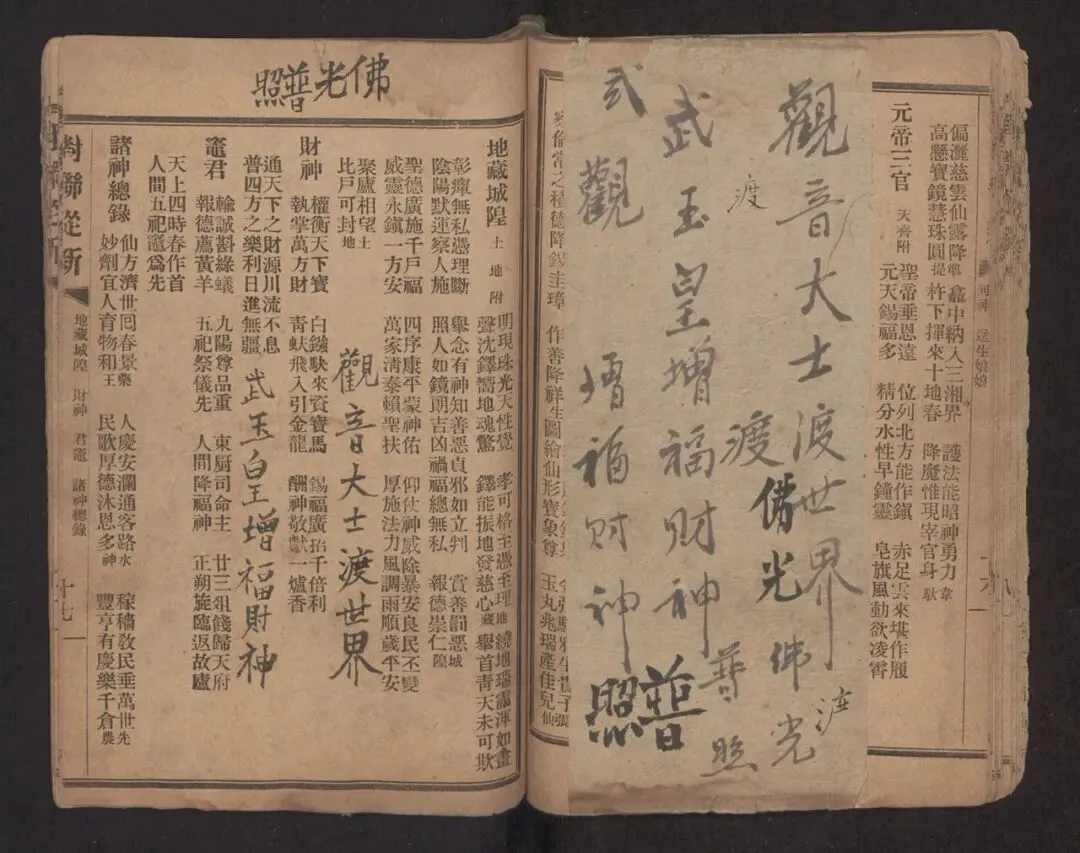 元帝三官 天齊附
聖帝垂恩遠 位列北方能作鎮 赤足雲來堪作履
元天錫福多 精分水性早鐘靈 皂旗風動欲凌霄
偏灑慈雲仙露降 龕中納入三湘界 護法能昭神勇力
高懸寶鏡慧珠圓 杵下揮來十地春 降魔惟現宰官身
送生娘娘
觀音大士渡世界 佛光
武玉皇增福財神 普照
渡
渡 佛光
普照
渡
武
觀 增福財神
地藏城隍 土地附
明現珠光天性覺 孝可格主憑至理地 繞地瑞靄渾如畫
聲沈鐸嚮地魂驚 鐸能振地發慈心藏 舉首青天未可欺
彰癉無私憑理斷 舉念有神知善惡 貞邪如立判 賞善罰惡城
陰陽默運察人施 照人如鏡朗吉凶 禍福總無私 報德崇仁隍
聖德廣施千戶福 四序康平蒙神佑 仰仗神威除暴安良民丕變
威靈永鎮一方安 萬家清泰賴聖扶 厚施法力風調雨順歲平安
聚廬相望土
比戶可封地
觀音大士渡世界
財神 權衡天下寶 白鏹駃來資寶馬 錫福廣招千倍利
執掌萬方財 青蚨飛入引金龍 酬神敬獻一爐香
通天下之財源川流不息
普四方之樂利日進無疆
武玉皇增福財神
竈君 輸誠斟綠蟻 九陽尊品重 東厨司命主 廿三俎餞歸天府
報德薦黃羊 五祀祭儀先 人間降福神 正朔旋臨返故廬
天上四時春作首
人間五祀竈爲先
諸神總錄 仙方濟世回春景藥 人慶安瀾通客路水 稼穡敎民垂萬世先
妙劑宜人育物和王 民歌厚德沐恩多神 豐亨有慶樂千倉農
佛光普照
對聯從新
地藏城隍 財神 君竈 諸神總錄
十七